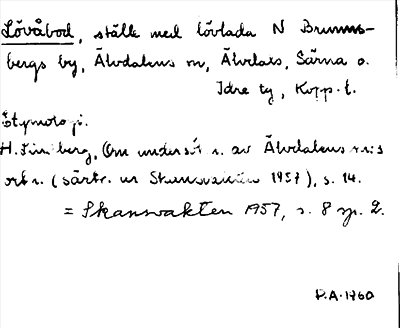 Lövåbod, ställe med lövlada N Brunns-
bergs by, Älvdalens sn, Älvdals, Särna o.
Idre tg, Kopp. l.
Etymologi.
H. berg, Om av Älvdalens
(särtr. ur Skansvakten 1957), s. 14.
= Skansvakten 1957, s. 8 sp. 2.
P.A. 1960